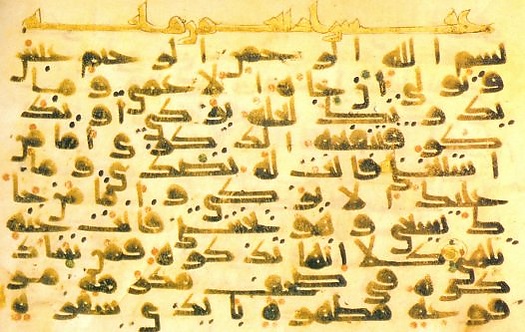 بسم الله الرحمن الرحيم عبس
وتولى ان جاه الاعمى وما
يدريك لعله يزكى او يذ
كر فتنفعه الذكرى اما من
استغنى فانت له تصدى وما
عليك الا يزكى واما من جا
ك يسعى وهو يخشى فانت عنه
تلهى كلا انها تذكرة فمن شا ذ
كره في صحف مكرمة مر
فوعة مطهرة بايدي سفرة